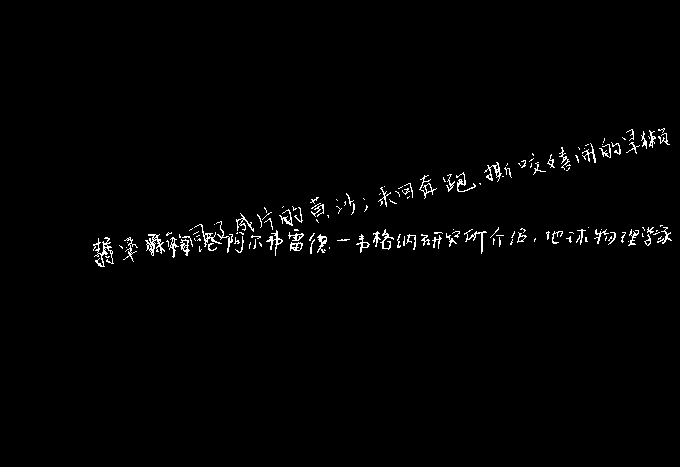 了成片的黄沙;来回奔跑、撕咬嬉闹的旱獭
阿尔弗雷德-韦格纳研究所介绍,地球物理学家